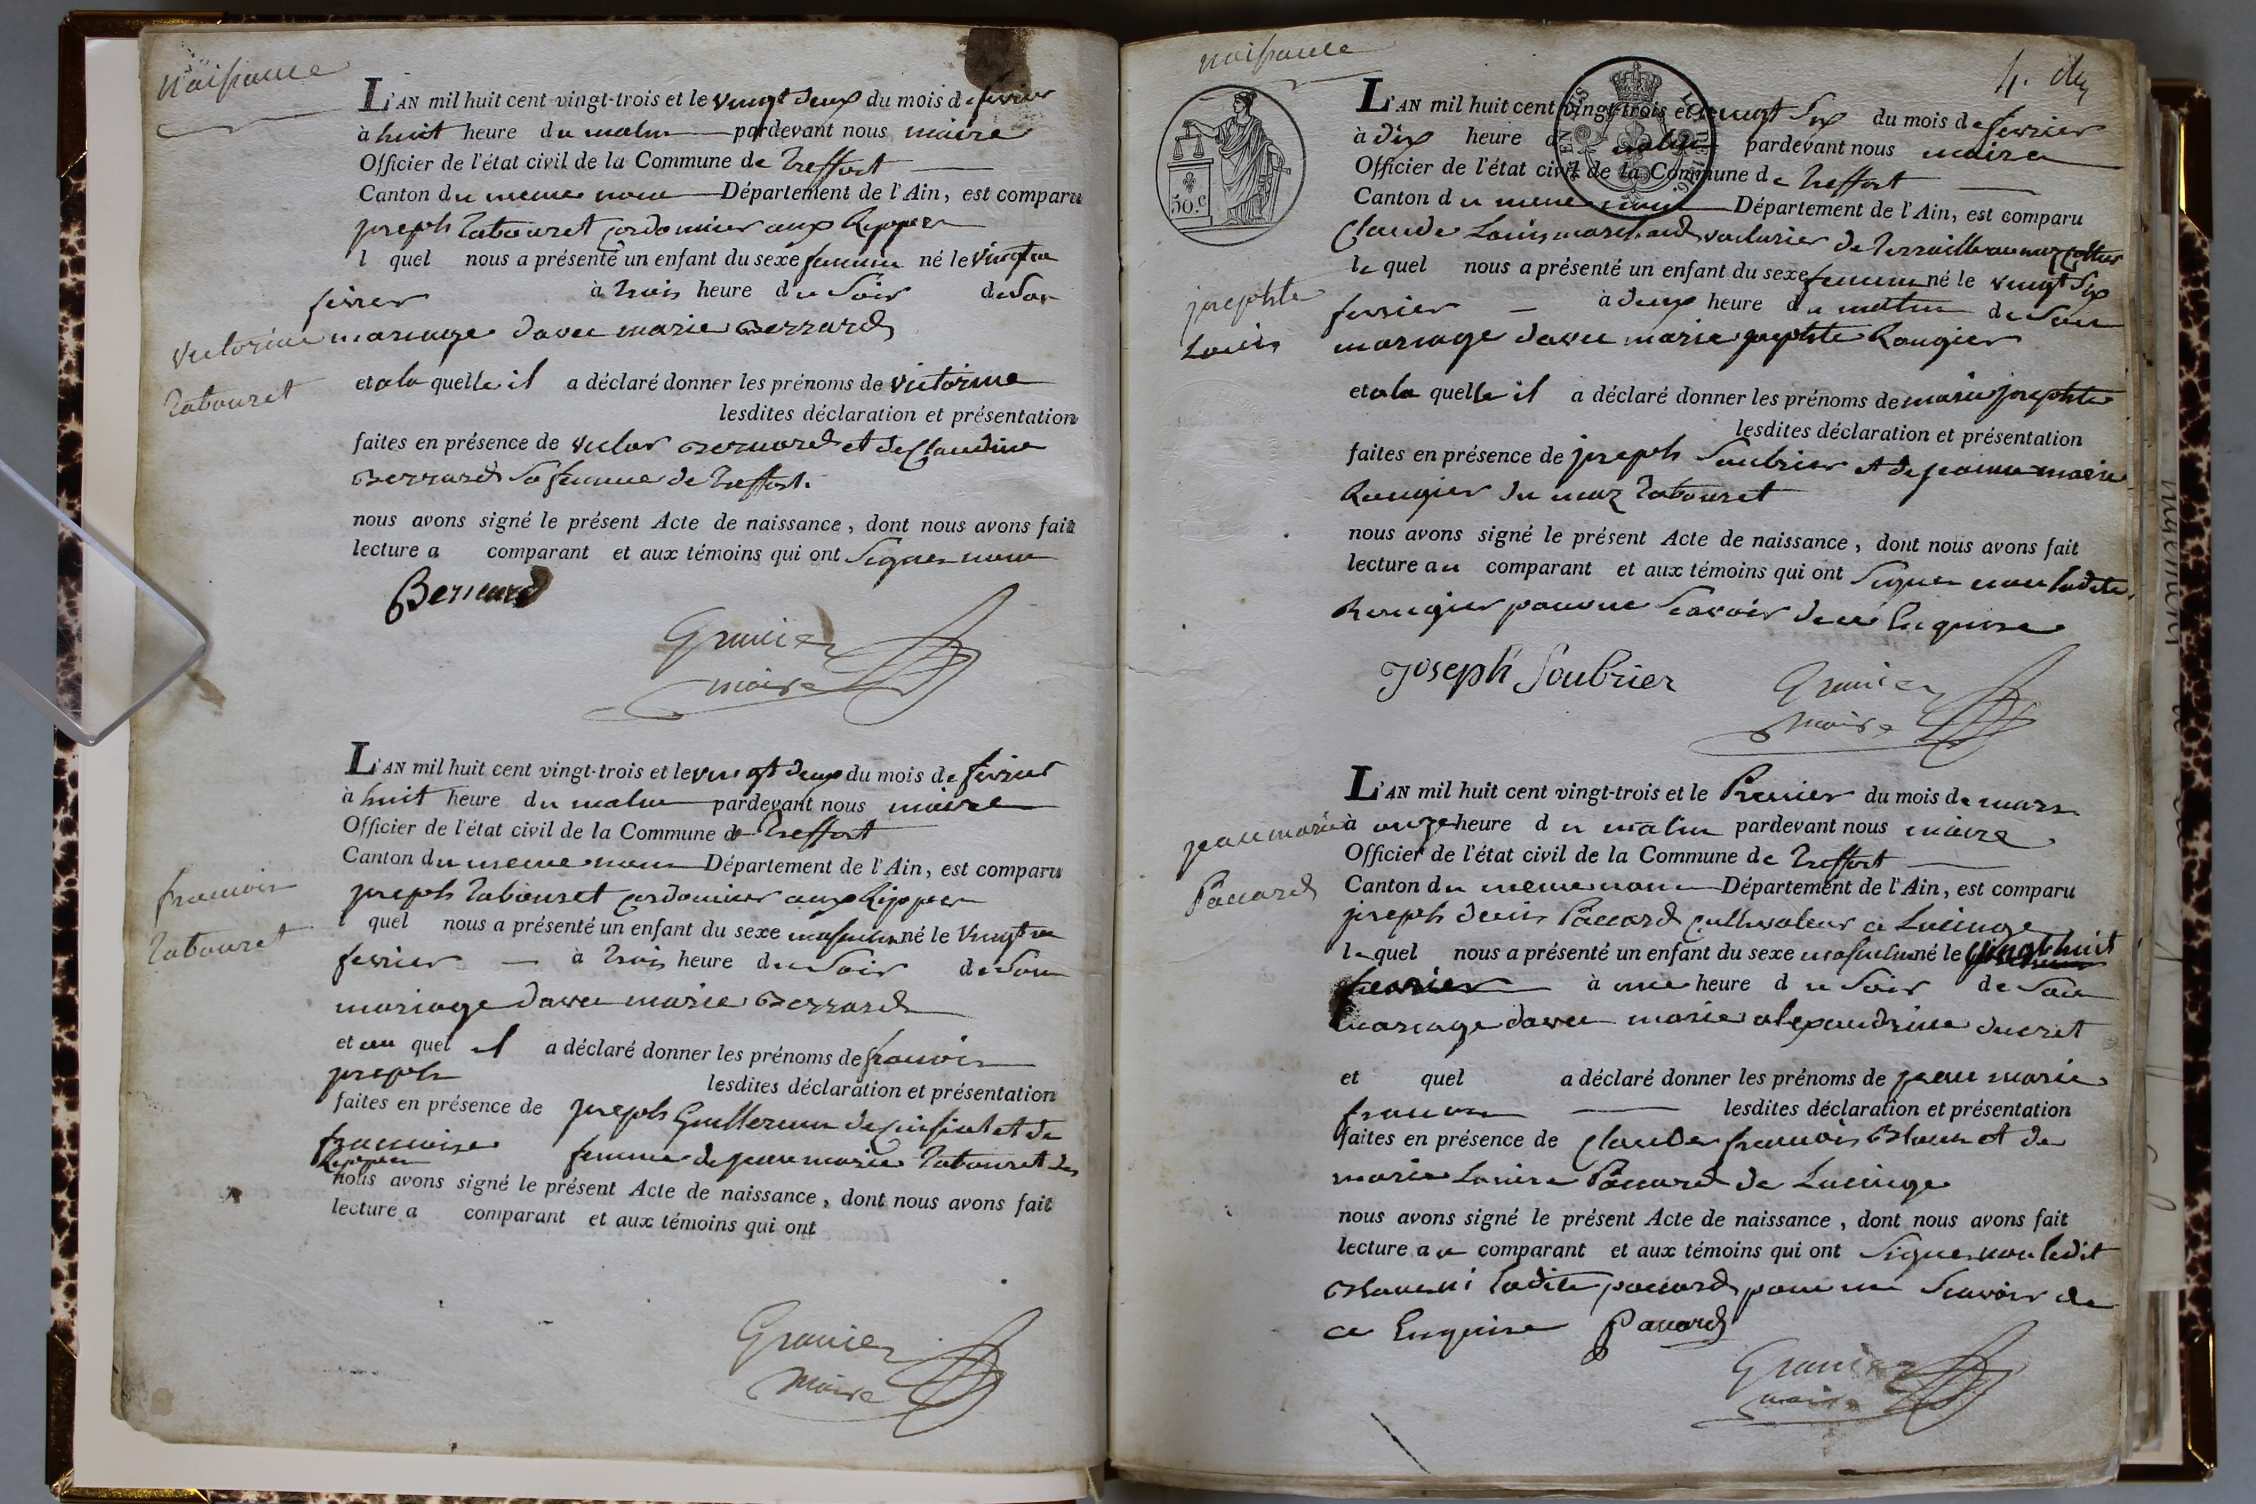 naissance
L'AN mil huit cent vingt-trois et le vingt deux du mois de fevrier
à huit heure du matin pardevant nous maire
Officier de l'état civil de la Commune de Treffort
Canton du meme nom Département de l'Ain, est comparu
joseph Tabouret cordonnier aux Rippes
l quel nous a présenté un enfant du sexe feminin né le vingt un
fevrier à trois heure du soir de son
mariage davec marie Berrard
victorine
Tabouret
et a la quelle il a déclaré donner les prénoms de victorine
lesdites déclaration et présentation
faites en présence de victor Bernard et de Claudine
Berrard sa femme de Treffort.
nous avons signé le présent Acte de naissance, dont nous avons fait
lecture a comparant et aux témoins qui ont signer nom
Bernard
Granier
maire
L'AN mil huit cent vingt-trois et le vingt deux du mois de fevrier
à huit heure du matin pardevant nous maire
Officier de l'état civil de la Commune de Treffort
Canton du meme nom Département de l'Ain, est comparu
francois
Tabouret
joseph Tabouret cordonnier aux Rippes
l quel nous a présenté un enfant du sexe masculin né le vingt un
fevrier à trois heure du soir de son
mariage davec marie Berrard
et au quel il a déclaré donner les prénoms de francois
joseph lesdites déclaration et présentation
faites en présence de joseph Guillermin de Cuisiat et de
francoise femme de jean marie Tabouret des
Rippes
nous avons signé le présent Acte de naissance, dont nous avons fait
lecture a comparant et aux témoins qui ont
Granier
Maire
naissance
4.
50.c
L'AN mil huit cent vingt-trois et le vingt six du mois de fevrier
à dix heure du matin pardevant nous maire
Officier de l'état civil de la Commune de Treffort
Canton du meme nom Département de l'Ain, est comparu
Claude Louis marchand voiturier de Terraille au maz
le quel nous a présenté un enfant du sexe feminin né le vingt six
fevrier à deux heure du matin de son
mariage davec marie josephte Rougier
josephte
Louis
et a la quelle il a déclaré donner les prénoms de marie josephte
lesdites déclaration et présentation
faites en présence de joseph Soubrier et de jeanne marie
Rougier du maz Tabouret
nous avons signé le présent Acte de naissance, dont nous avons fait
lecture au comparant et aux témoins qui ont signer non ladite
Rougier pour ne scavoir de ce Enquise
Joseph Soubrier
Granier
Maire
L'AN mil huit cent vingt-trois et le Premier du mois de mars
à onze heure du matin pardevant nous maire
Officier de l'état civil de la Commune de Treffort
Canton du meme nom Département de l'Ain, est comparu
jean marie
Pauard
joseph denis Pauard cultivateur a Lucinge
le quel nous a présenté un enfant du sexe masculin né le vingt huit
fevrier à une heure du soir de son
mariage davec marie alexandrine ducret
et quel a déclaré donner les prénoms de jean marie
francois lesdites déclaration et présentation
faites en présence de Claude francois Blanc et de
marie Louise Pauard de Lucinge
nous avons signé le présent Acte de naissance, dont nous avons fait
lecture au comparant et aux témoins qui ont signer non ledit
Blanc ni ladite pauard pour ne scavoir de
ce Enquise Pauard
Granier
maire